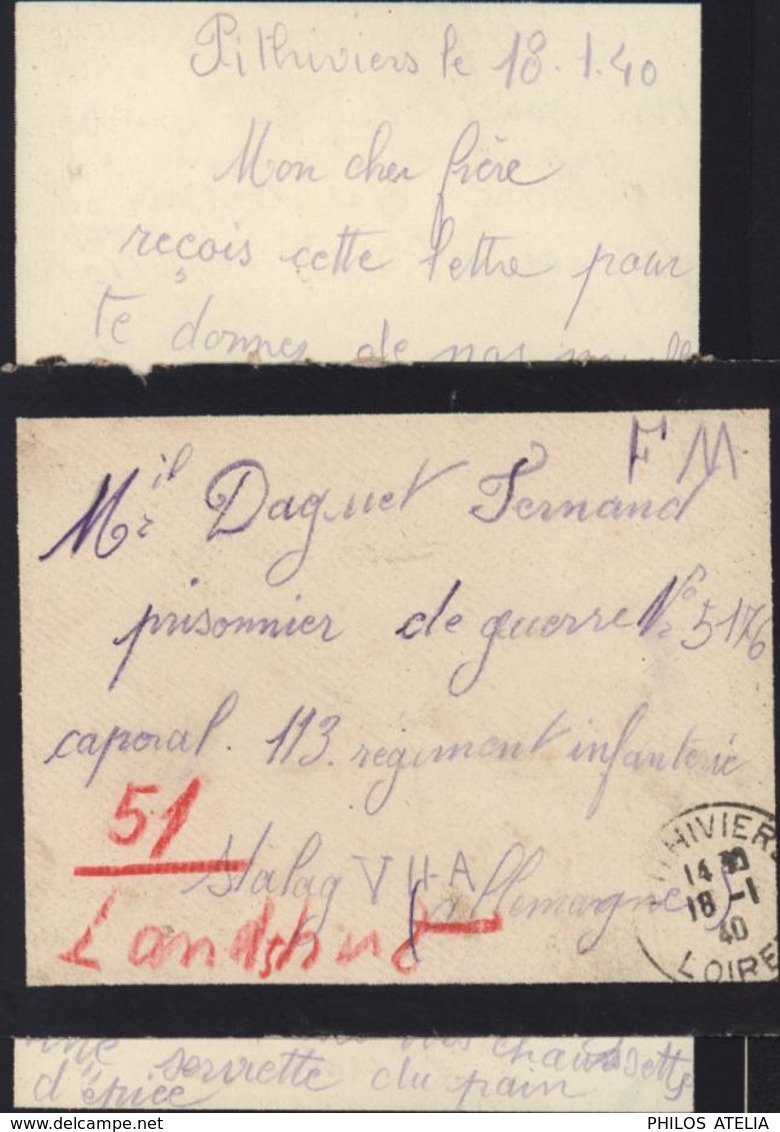 Pithiviers le 18.1.40
Mon cher frère
reçois cette lettre pour
te donnes de nos
FM
Mr Daguet Fernand
prisonnier de guerre No 5176
caporal. 113. régiment infanterie
51
Stalag VII-A (Allemagne)
Landshud
THIVIERS
14
18 -1
40
LOIRE
serviette du pain
d'épice
PHILOS ATELIA